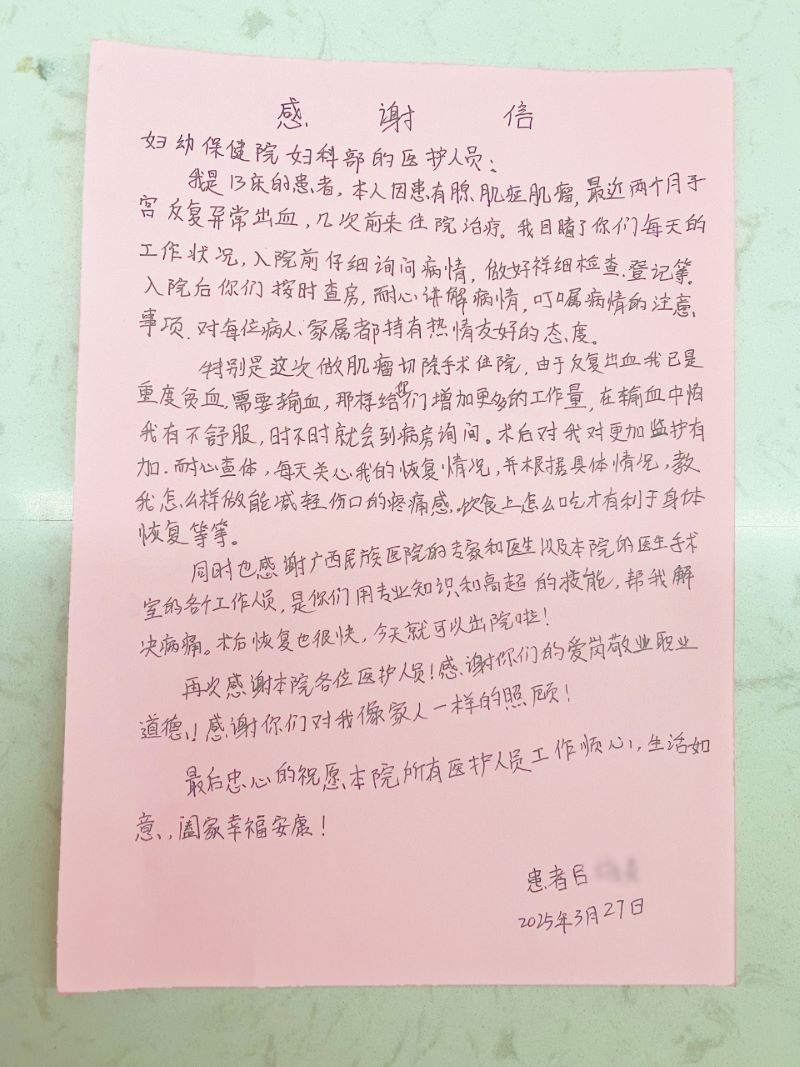 感谢信
妇幼保健院妇科部的医护人员:
我是13床的患者,本人因患有腺肌症肌瘤,最近两个月子
宫反复异常出血,几次前来住院治疗。我目睹了你们每天的
工作状况,入院前仔细询问病情,做好详细检查.登记等。
入院后你们按时查房,耐心讲解病情,叮嘱病情的注意
事项.对每位病人.家属都持有热情友好的态度。
特别是这次做肌瘤切除手术住院,由于反复出血我已是
重度贫血,需要输血,那样给你们增加更多的工作量,在输血中怕
我有不舒服,时不时就会到病房询问。术后对我对更加监护有
加.耐心查体,每天关心我的恢复情况,并根据具体情况,教
我怎么样做能减轻伤口的疼痛感.饮食上怎么吃才有利于身体
恢复等等。
同时也感谢广西民族医院的专家和医生以及本院的医生手术
室的各个工作人员,是你们用专业知识和高超的技能,帮我解
决病痛。术后恢复也很快,今天就可以出院啦!
再次感谢本院各位医护人员!感谢你们的爱岗敬业职业
道德!感谢你们对我像家人一样的照顾!
最后忠心的祝愿本院所有医护人员工作顺心,生活如
意,阖家幸福安康!
患者
2025年3月27日